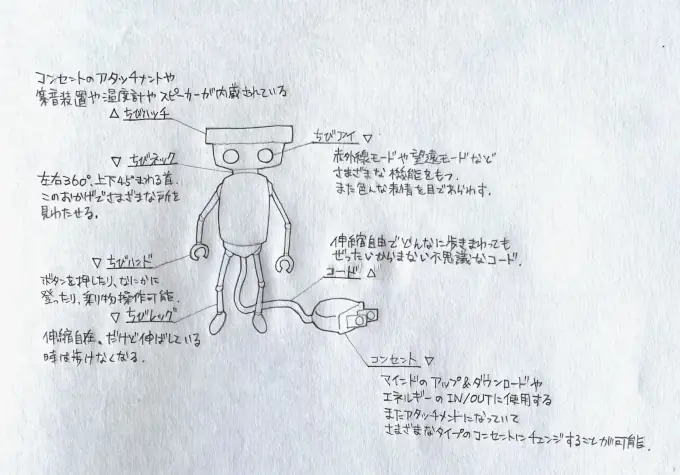 コンセントのアタッチメントや
録音装置や温度計やスピーカーが内蔵されている
△ ちびハッチ
ちびアイ ▽
赤外線モードや望遠モードなど
さまざまな機能をもつ。
また色んな表情を目であらわす。
▽ ちびネック
左右360°、上下45°まわる首。
このおかげでさまざまな所を
見わたせる。
伸縮自由でどんなに歩きまわっても
ぜったいからまない不思議なコード。
コード △
▽ ちびハンド
ボタンを押したり、なにかに
登ったり、乗り物操作可能。
▽ ちびレッグ
伸縮自在、だけど伸ばしている
時は歩けなくなる。
コンセント ▽
マインドのアップ&ダウンロードや
エネルギーのIN/OUTに使用する
またアタッチメントになっていて
さまざまなタイプのコンセントにチェンジすることが可能。